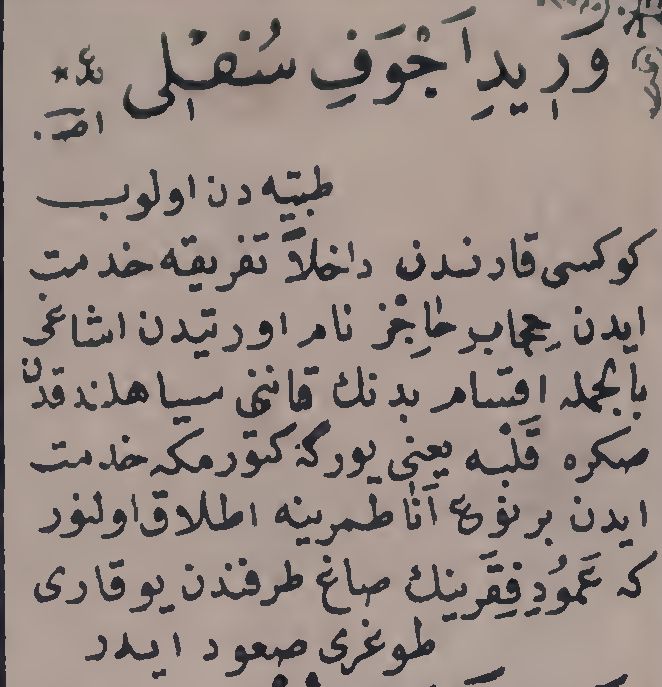 وَرِيدِ اَجْوَفِ سُفْلِی ع *
اصـ.
طبیّه دن اولوب
کوکسی قارندن داخلاً تفریقه خدمت
ایدن حِجَاب حَاجِز نام اورتیدن اشاغی
بالجمله اقسام بدنك قاننی سیاهلندقدن
صکره قَلْبه یعنی یورکه کتورمکه خدمت
ایدن بر نوع آنا طمرینه اطلاق اولنور
که عَمُودِ فِقَرینك صاغ طرفندن یوقاری
طوغری صعود ایدر